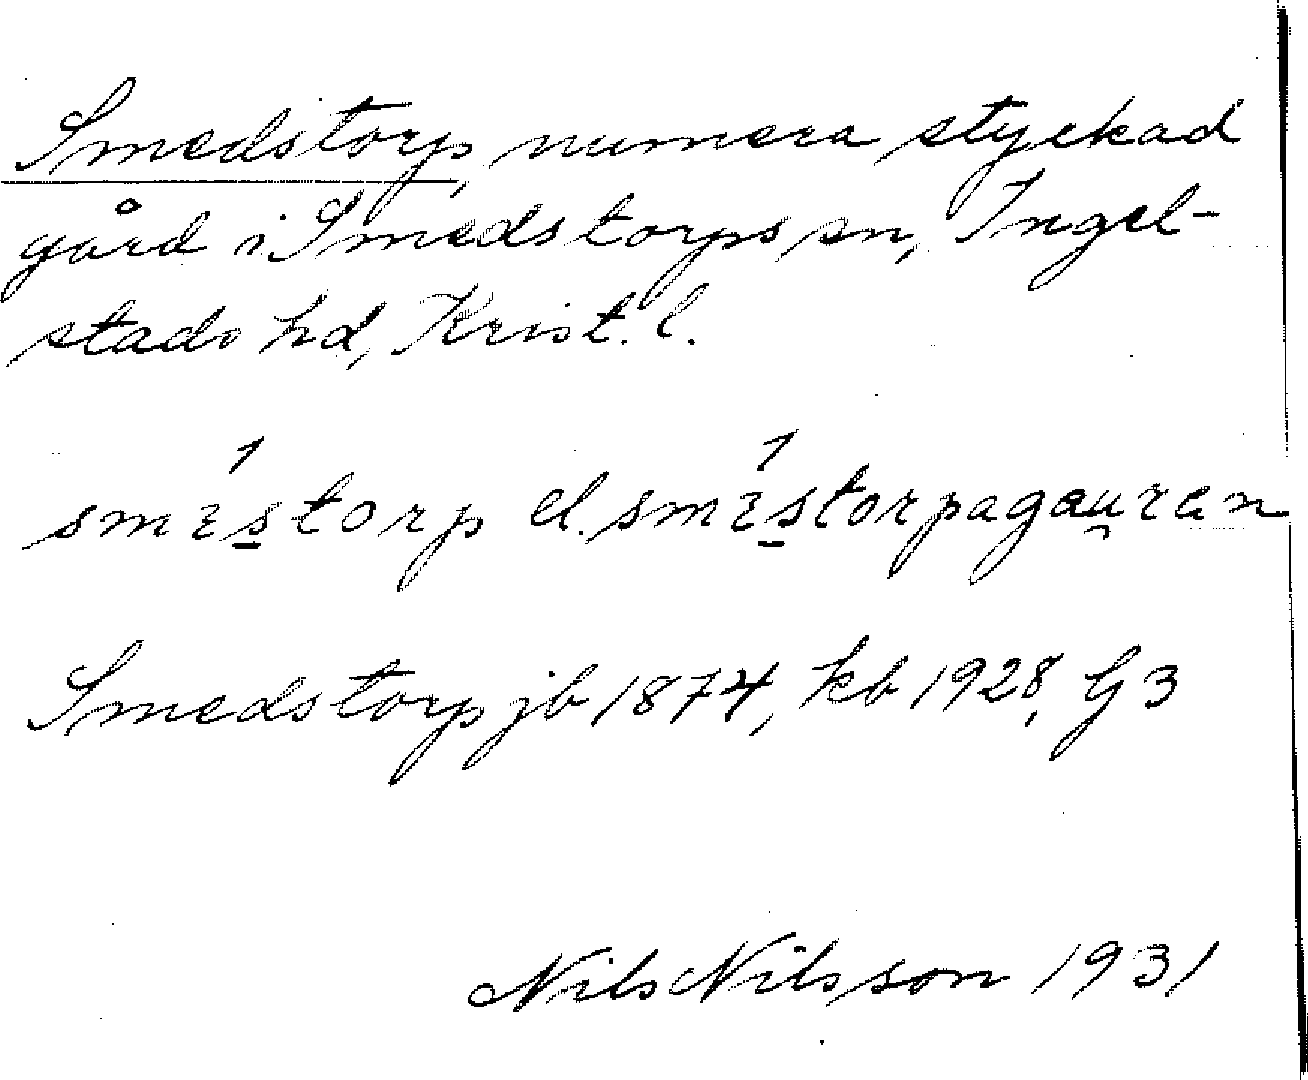 Smedstorp, numera styckad
gård i Smedstorps sn, Ingel-
stads hd, Krist. l.
smɛs̱torp el. smɛs̱torpagau̯ran
Smedstorp jb 1874, kb 1928, G 3
Nils Nilsson 1931